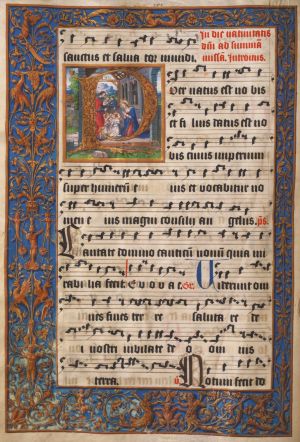 In die nativitatis
dñi ad summã
sanctus et salva tor mundi. missã. Introitus.
Puer natus est no bis
et fi lius datus est no
bis cuius imperium
super humerũ e ius et vocabitur no
men e ius magni consilij an gelus. ps
Cantate domino canticũ novũ quia mi
rabilia fecit. E v o v a e. Gr. Viderunt om
nes fines ter re saluta re de
i nostri iubilate de o om nis
terra. v Notum fecit do